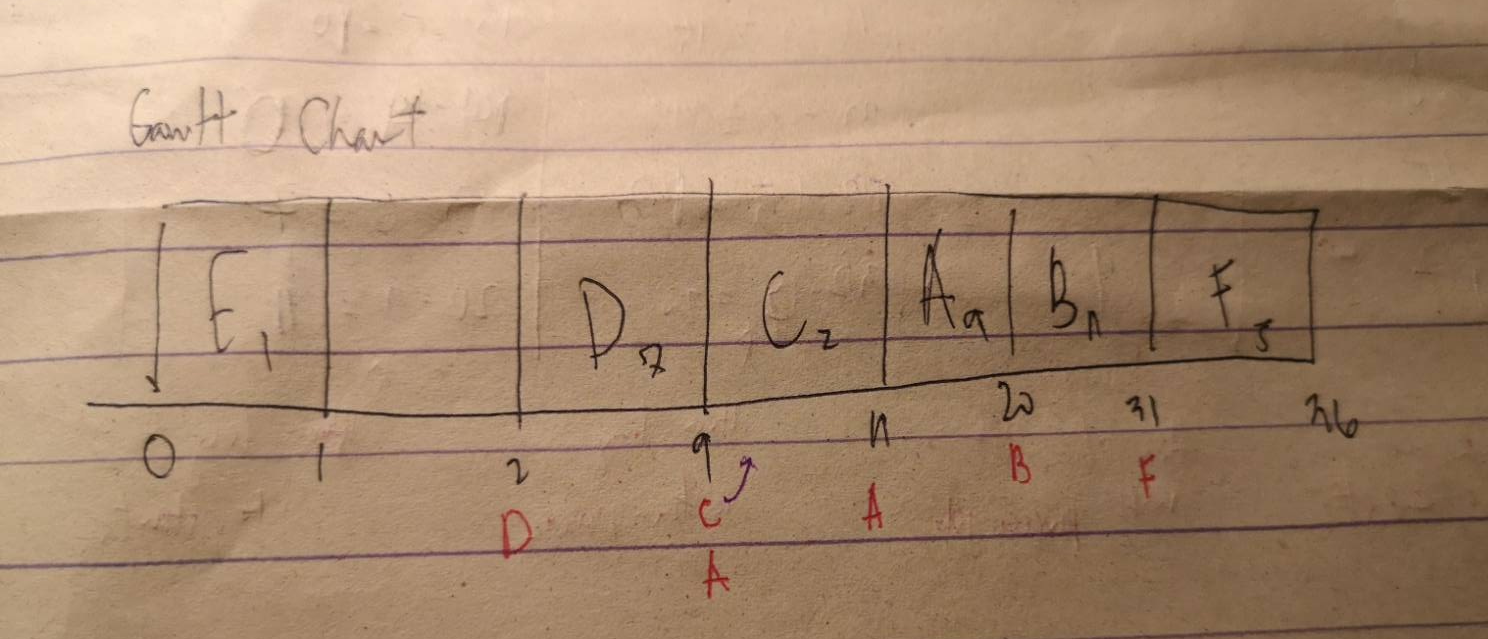 Gantt Chart
E1 D7 C2 A9 B11 F5
0 1 2 9 11 20 31 36
D C A B F
A